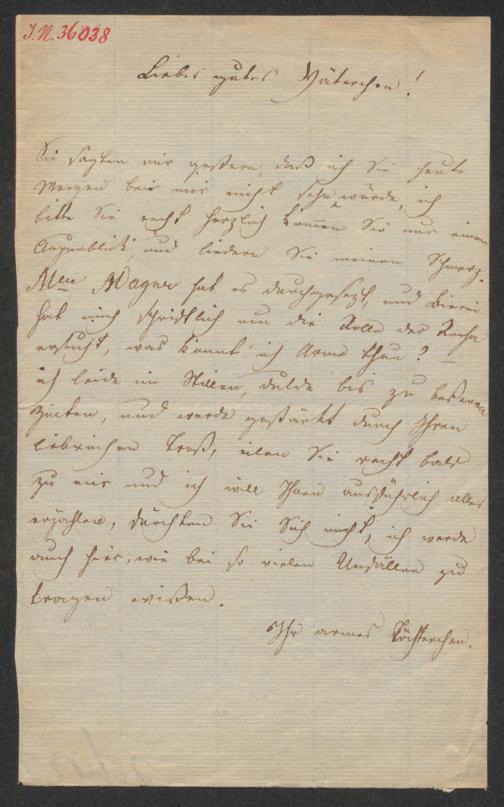 J.N. 36038
Liebes gutes Väterchen!
Sie sagten mir gestern, daß ich Sie heute
Morgen bei mir nicht sehn würde, ich
bitte Sie recht herzlich kommen Sie nur einen
Augenblick, und lindern Sie meinen Schmerz.
Wagner hat es durchgesetzt, und Bierei
hat mich schriftlich um die Rolle der Recha
ersucht, was kann ich Arme thun?
ich leide im Stillen, dulde bis zu beßeren
Zeiten, und werde gestärkt durch Ihren
liebreichen Trost, eilen Sie recht bald
zu mir und ich will Ihnen ausführlich alles
erzählen, fürchten Sie Sich nicht, ich werde
auch hier, wie bei so vielen Unfällen zu
tragen wißen.
Ihr armes Töchterchen.